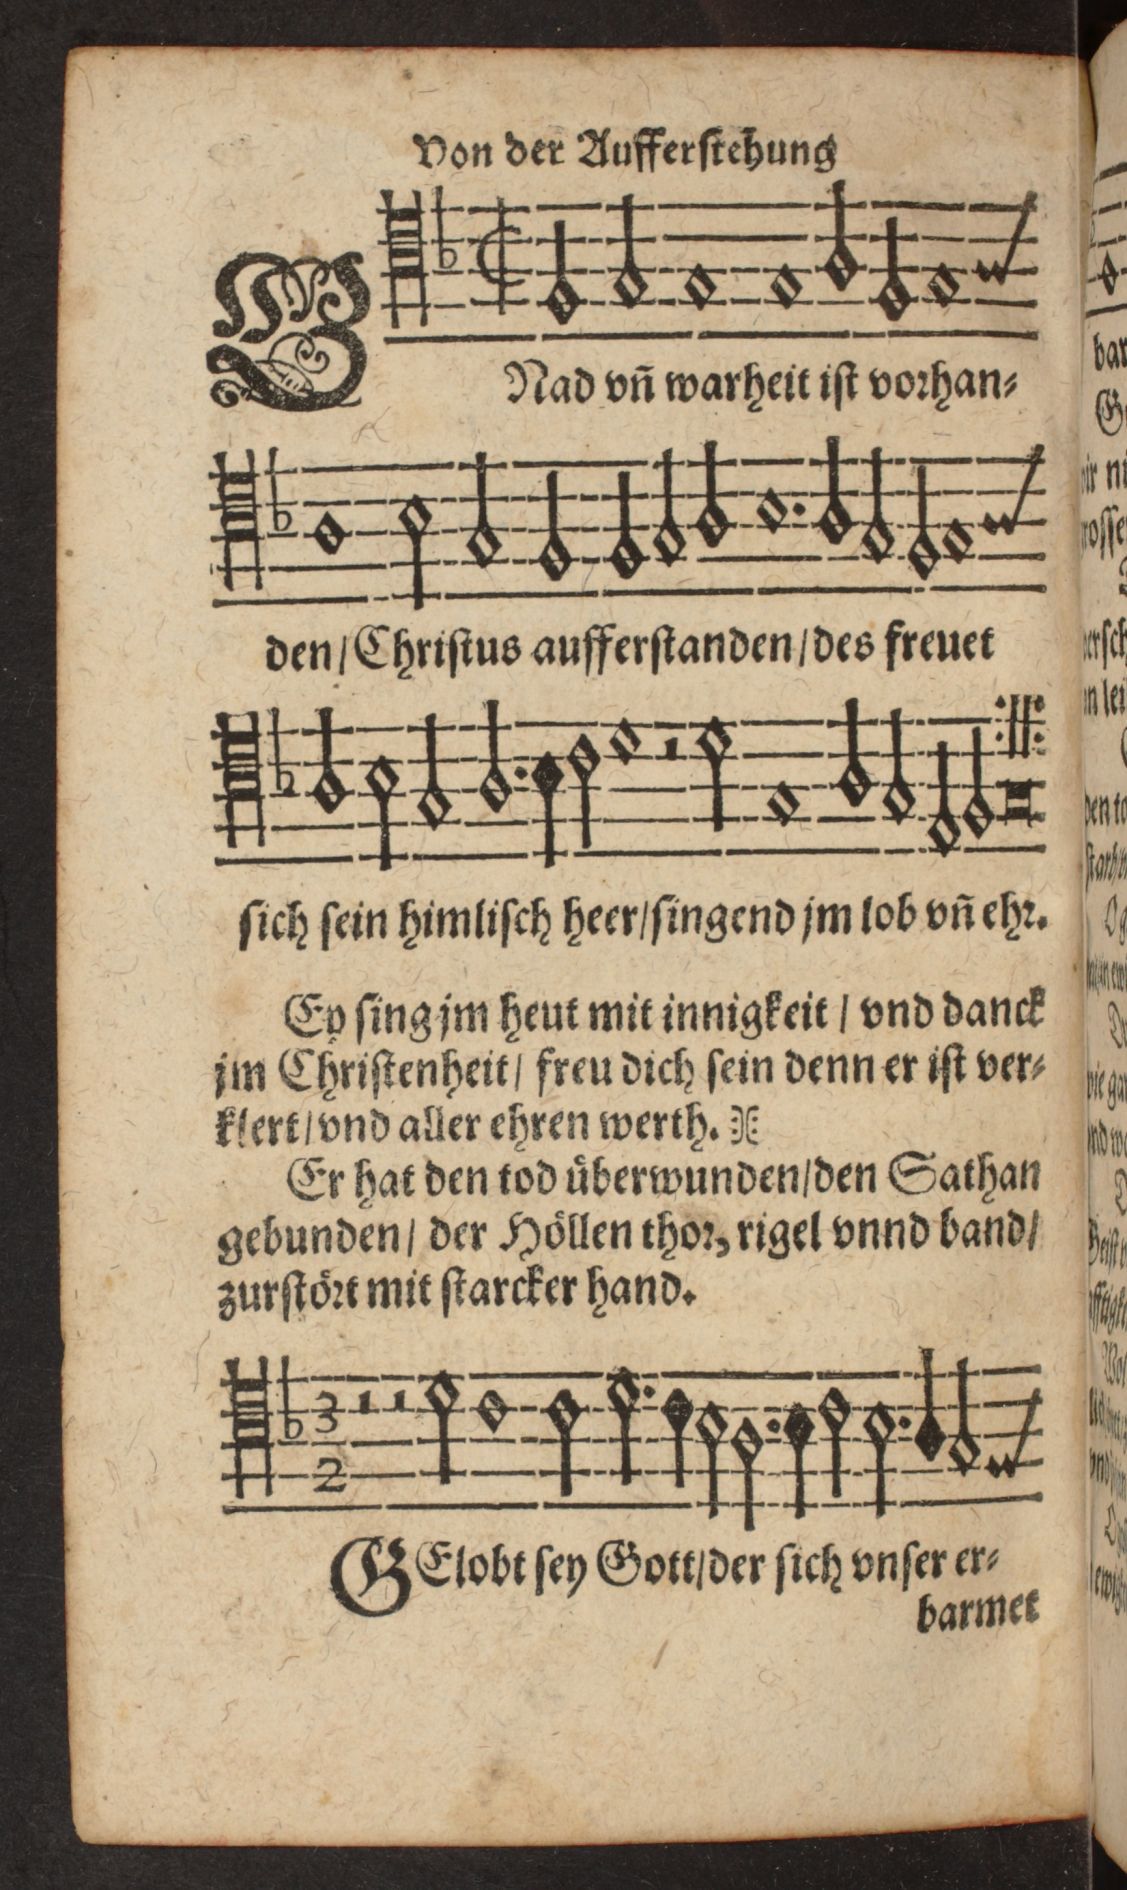 Von der Aufferstehung
GNad vn̄ warheit ist vorhan-
den/Christus aufferstanden/des freuet
sich sein himlisch heer/singend jm lob vn̄ ehr.
Ey sing jm heut mit innigkeit / vnd danck
jm Christenheit/ freu dich sein denn er ist ver-
klert/vnd aller ehren werth.
Er hat den tod überwunden/den Sathan
gebunden/ der Höllen thor, rigel vnnd band/
zurstört mit starcker hand.
3 3 2
GElobt sey Gott/der sich vnser er-
barmet